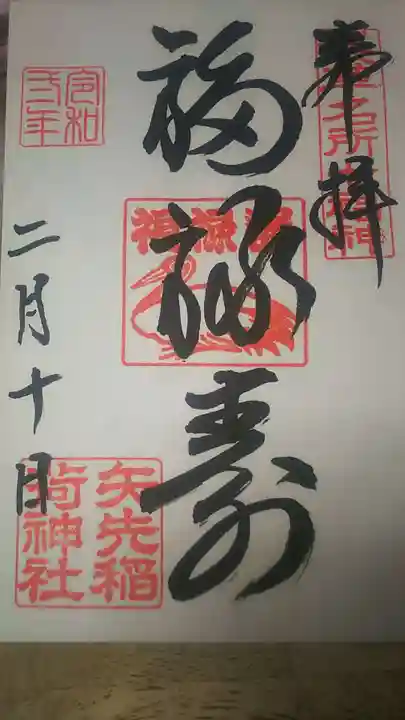 奉拝
福禄寿
福禄寿
矢先稲
荷神社
令和
弐年
二月十日